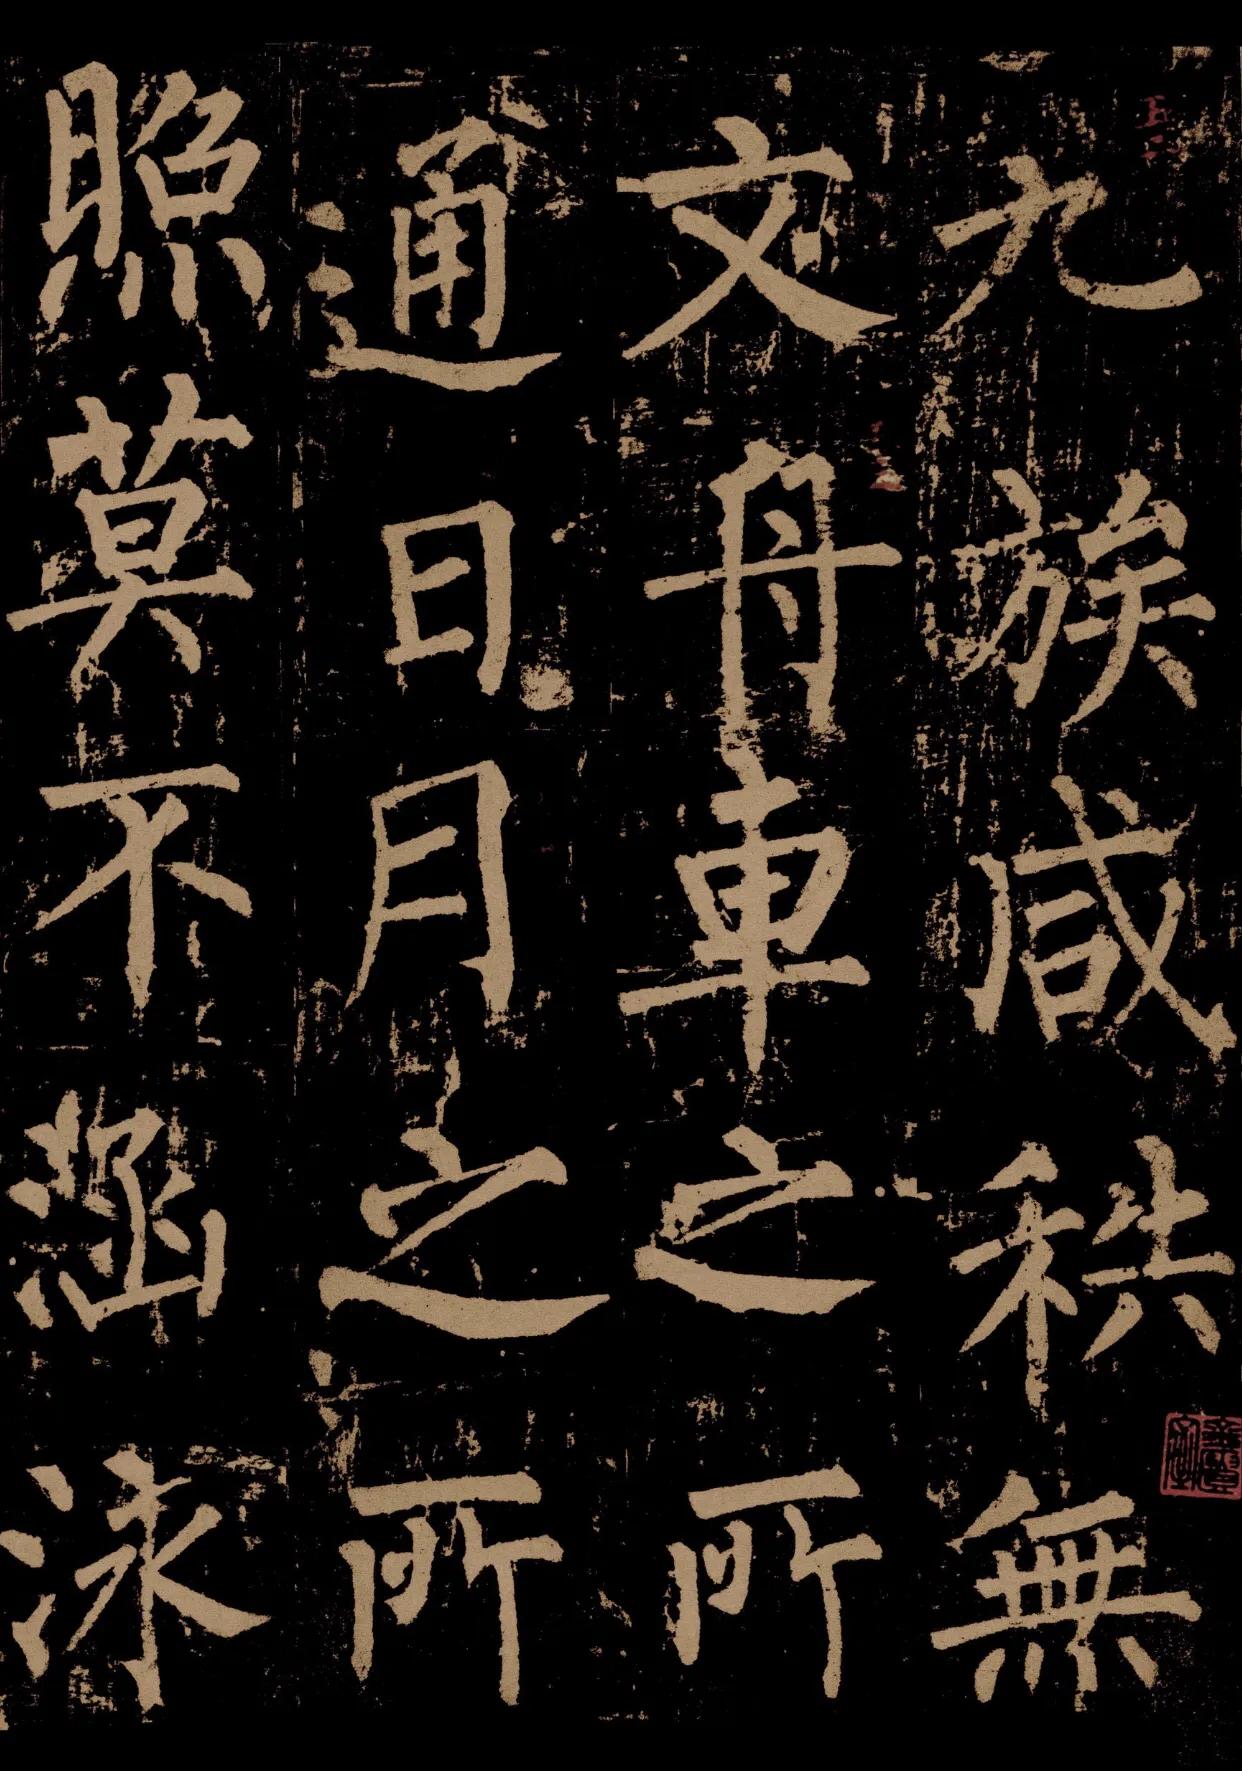 九族咸秩無
文舟車之所
通日月之所
照莫不涵泳